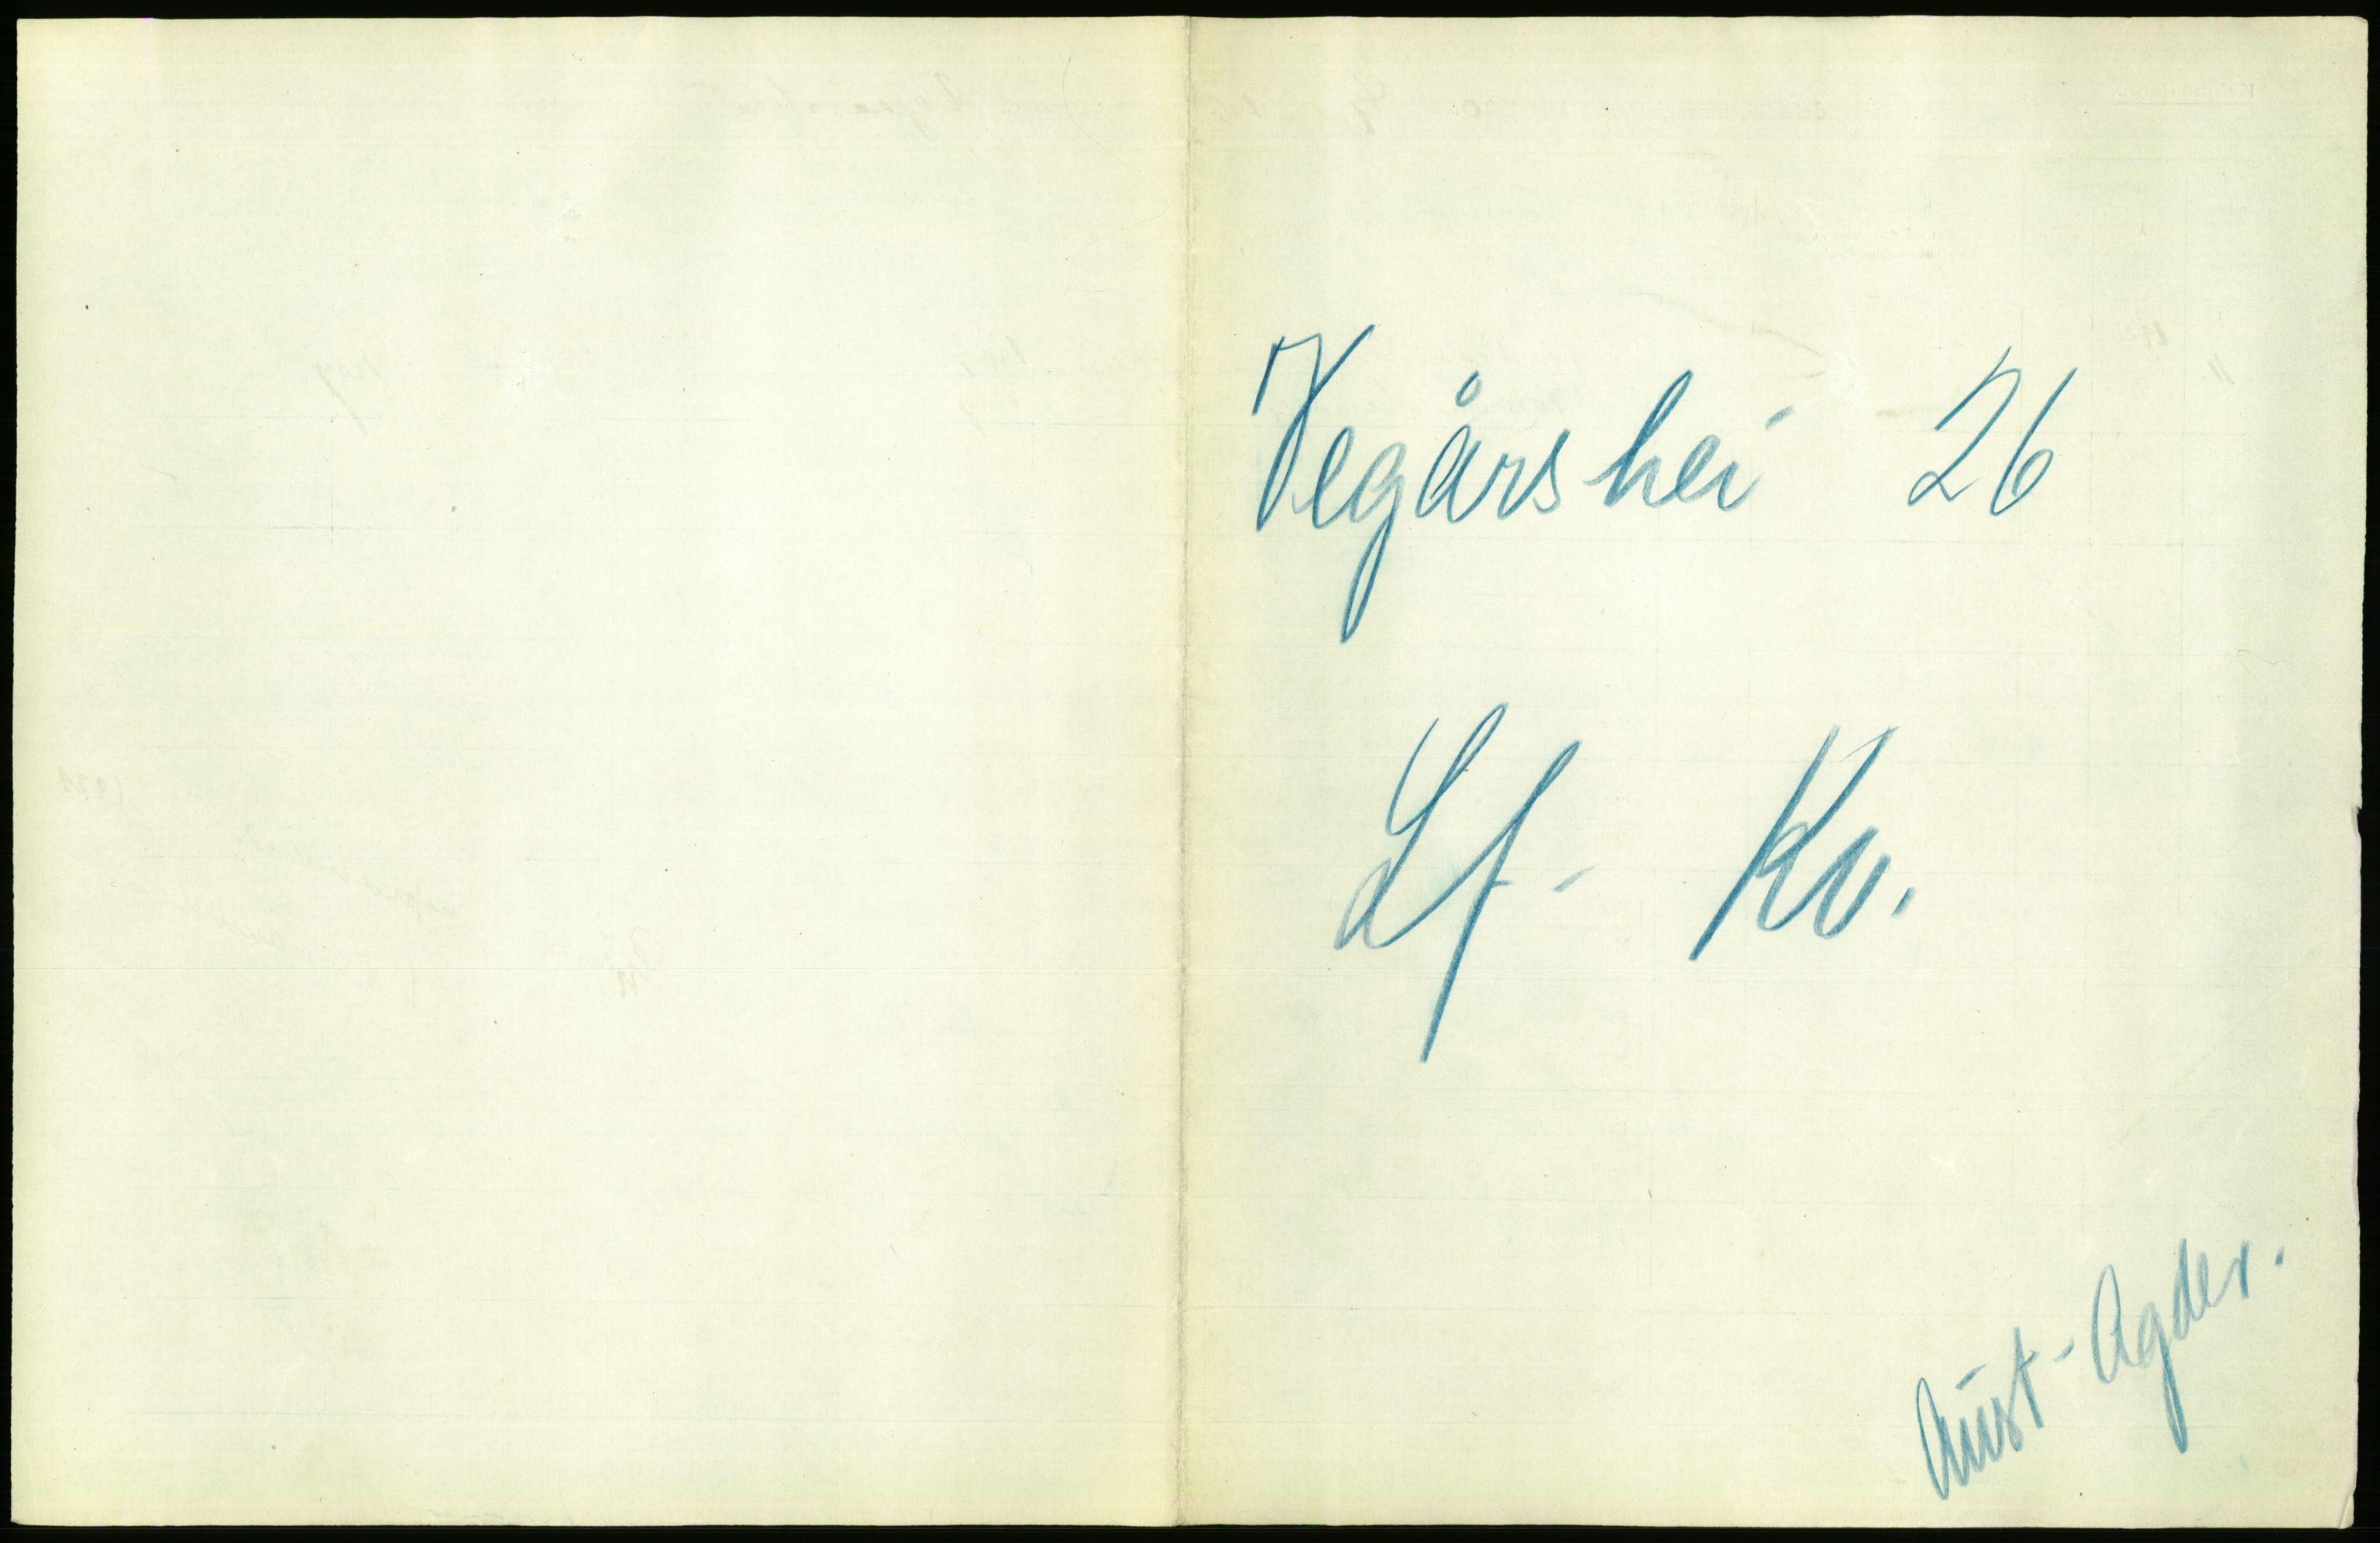 Vegårshei 26
Lf - Kv.
Aust-Agder.